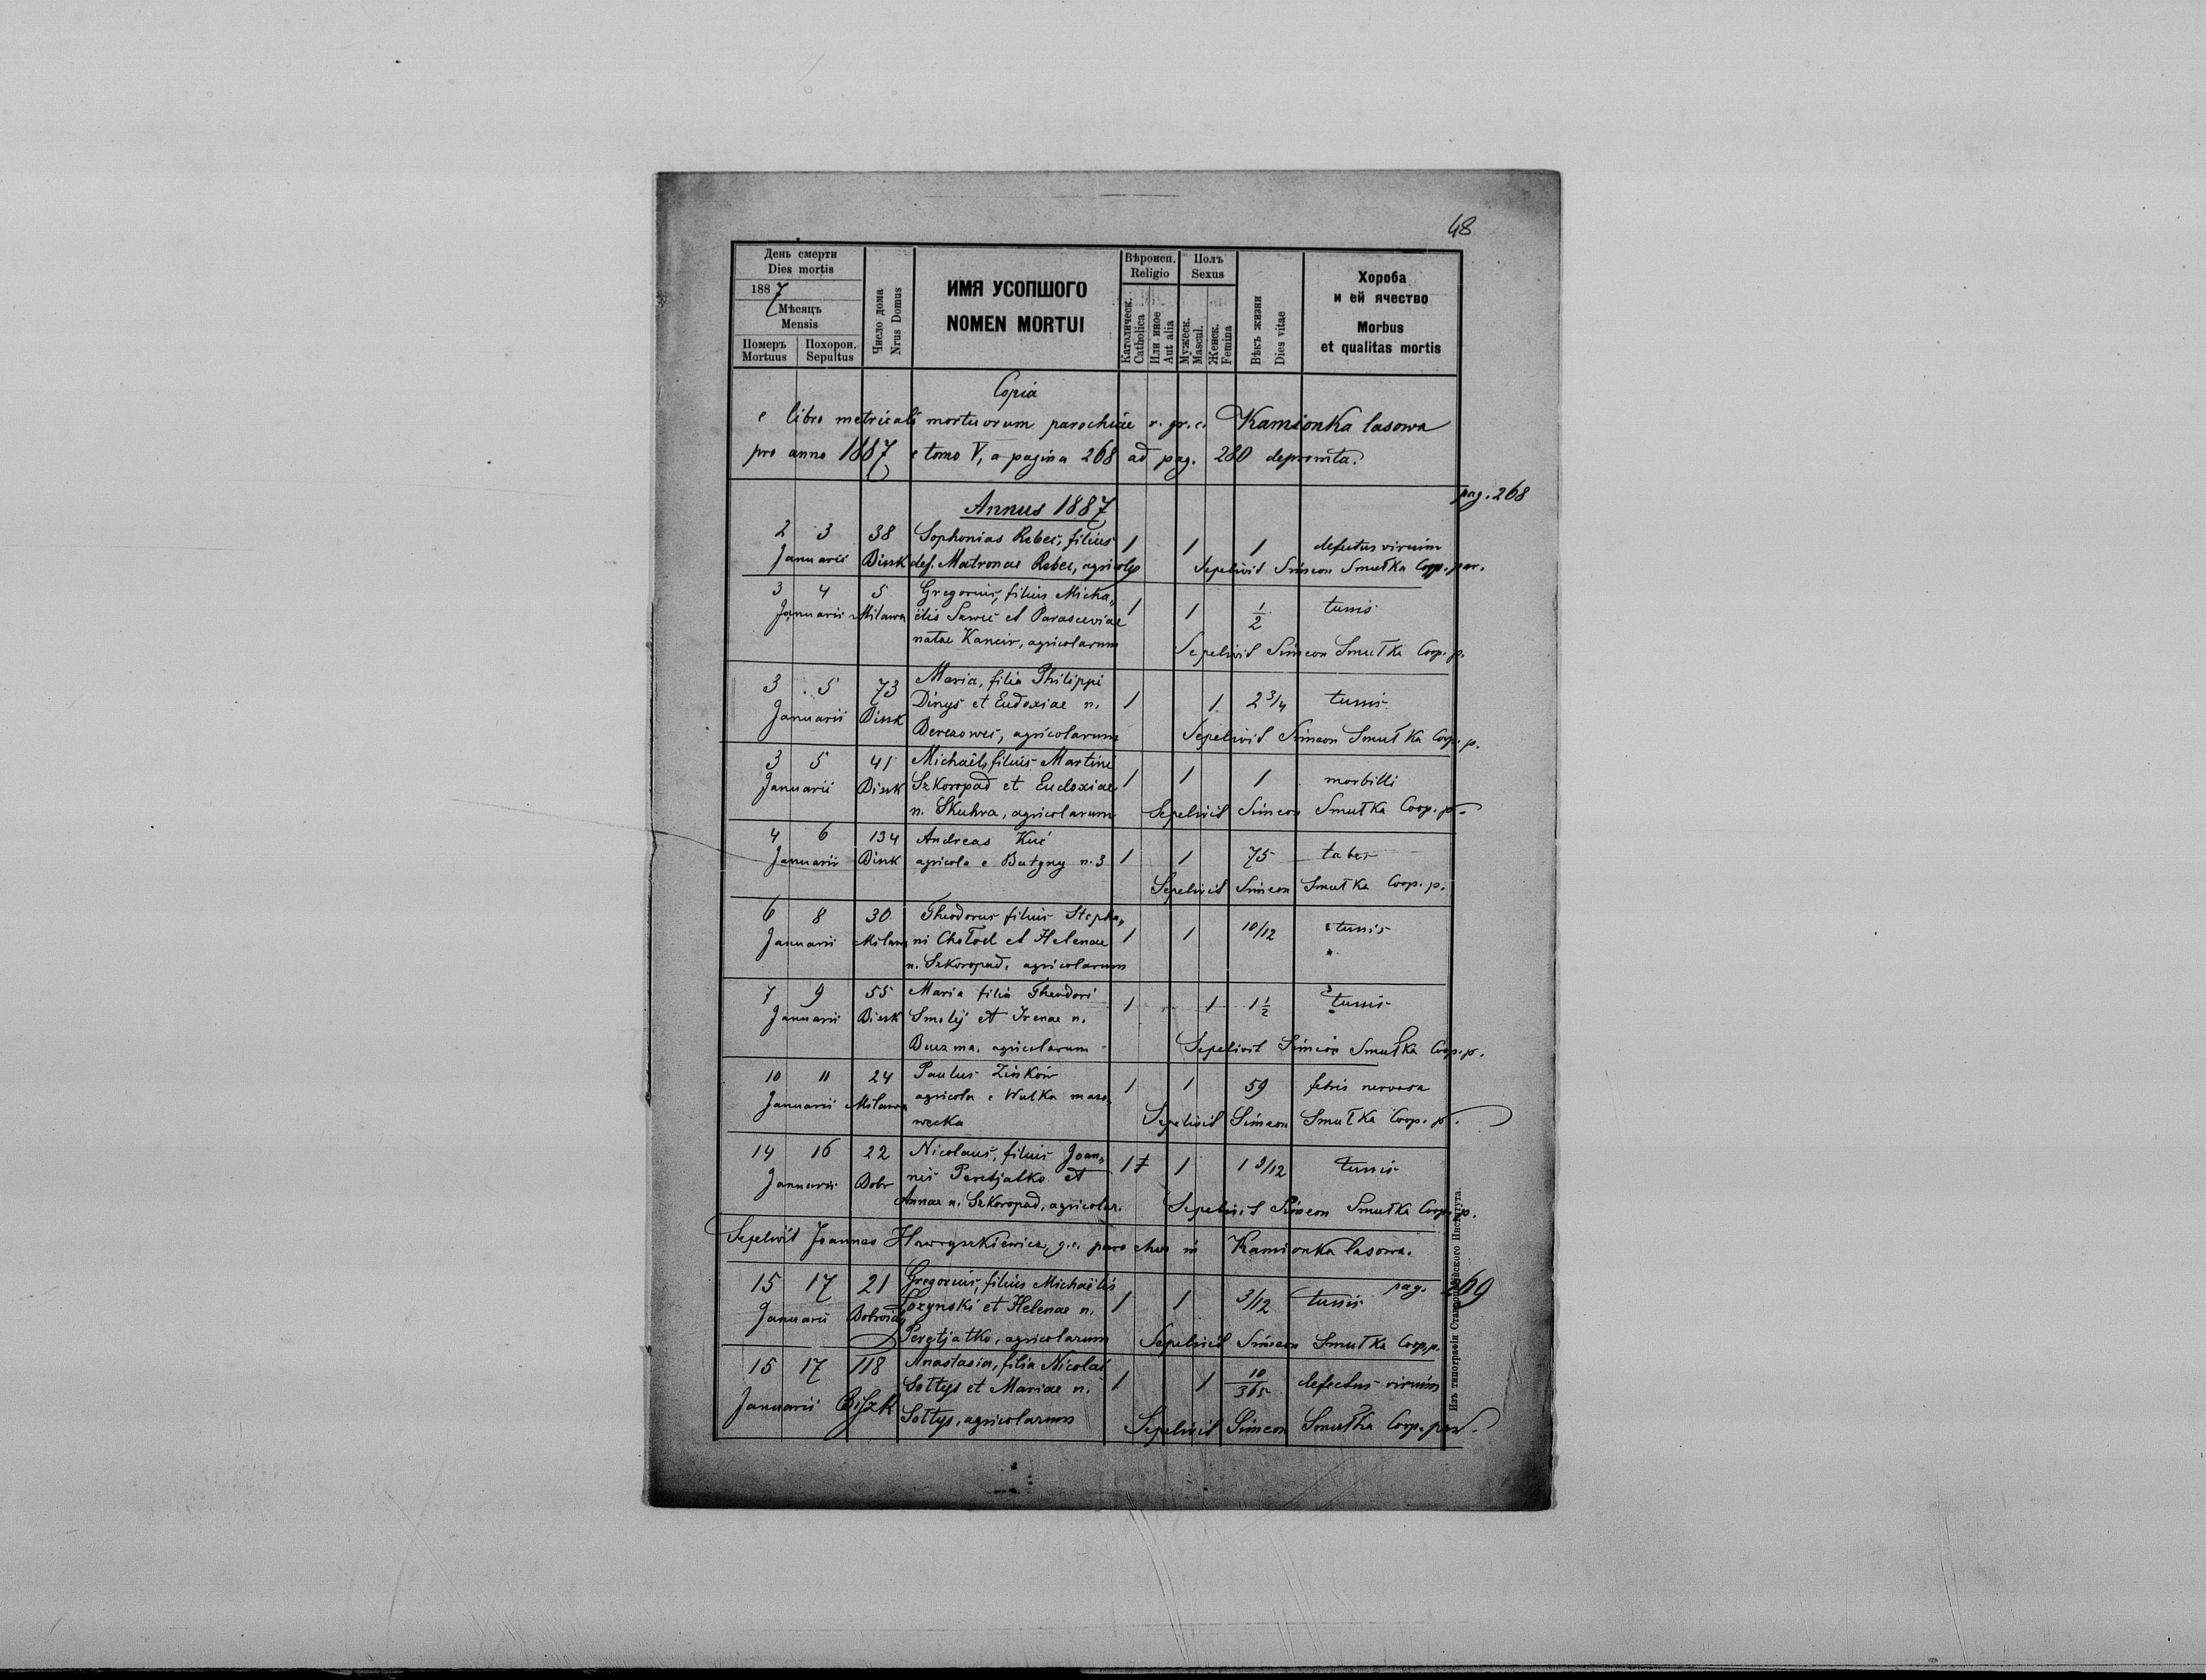 48
День смерти
Dies mortis
1887
Мѣсяцъ
Mensis
Померъ Mortuus
Похорон. Sepultus
Число дома
Nrus Domus
ИМЯ УСОПШОГО
NOMEN MORTUI
Вѣроисп.
Religio
Католическ.
Catholica
Или иное
Aut alia
Полъ
Sexus
Мужеск.
Mascul.
Женск.
Femina
Вѣкъ жизни
Dies vitae
Хороба
и ей ячество
Morbus
et qualitas mortis
Copia
e libro metricali mortuorum parochiae r. gr. c. Kamionka lasowa
pro anno 1887 e tomo V, a pagina 268 ad pag. 280 depromta.
pag. 268
Annus 1887
2 3 38 Sophonias Rebec, filius 1 1 1 defectus virium
Januarii Bissk def. Matronae Rebec, agricolae Sepelivit Simeon Smułka Coop. par.
3 4 5 Gregorius, filius Micha„ 1 1 1/2 tussis
Januarii Milawa ëlis Sawic et Parasceviae
natae Kancir, agricolarum Sepelivit Simeon Smułka Coop. p.
3 5 73 Maria, filia Philippi
Januarii Bissk Dinys et Eudoxiae n. 1 1 2 3/4 tussis
Berezowec, agricolarum Sepelivit Simeon Smułka Coop. p.
3 5 41 Michaël, filius Martini
Januarii Bissk Szkoropad et Eudoxiae 1 1 1 morbilli
n. Skuhra, agricolarum Sepelivit Simeon Smułka Coop. p.
4 6 134 Andreas Kuć
Januarii Bissk agricola e Butyny n. 3 1 1 75 tabes
Sepelivit Simeon Smułka Coop. p.
6 8 30 Theodorus filius Stepha„
Januarii Milawa ni Chołod et Helenae 1 1 10/12 tussis
n. Szkoropad, agricolarum
7 9 55 Maria filia Theodori 1 1 1 1/2 tussis
Januarii Bissk Smolij et Irenae n.
Buzma, agricolarum Sepelivit Simeon Smułka Coop. p.
10 11 24 Paulus Zinków 1 1 59 febris nervosa
Januarii Milawa agricola e Wulka mazo„
wecka Sepelivit Simeon Smułka Coop. p.
14 16 22 Nicolaus, filius Joan„ 1 1 1 9/12 tussis
Januarii Dobr nis Peretjatko et
Annae n. Szkoropad, agricolar. Sepelivit Simeon Smułka Coop. p.
Sepelivit Joannes Hawryszkiewicz, g. c. parochus in Kamionka lasowa.
pag. 269
15 17 21 Gregorius, filius Michaëlis
Januarii Łozynski et Helenae n. 1 1 3/12 tussis
Peretjatko, agricolarum Sepelivit Simeon Smułka Coop. p.
15 17 118 Anastasia, filia Nicolai
Sołtys et Mariae n. 1 1 10/365 defectus virium
Januarii Biszk Sołtys, agricolarum Sepelivit Simeon Smułka Coop. par.
Изъ типографіи Ставропигійского Института.